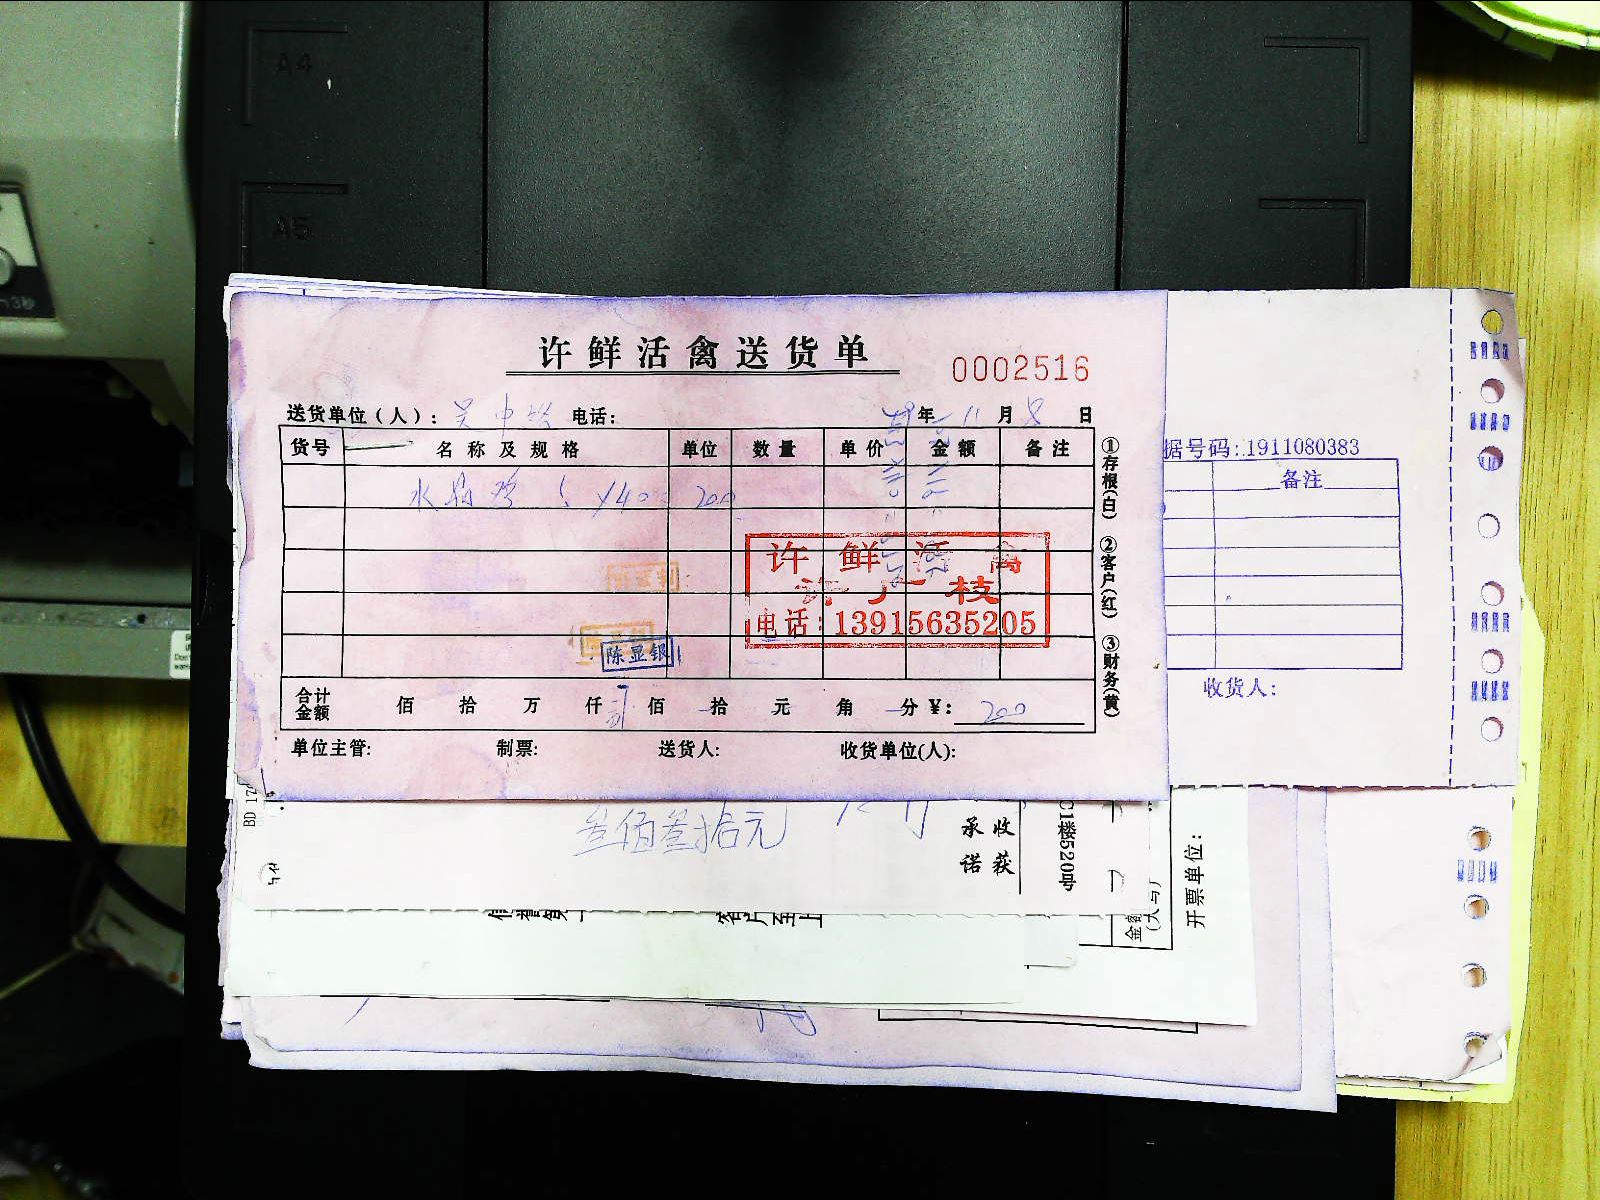 A4
A5
许鲜活禽送货单
0002516
送货单位（人）：吴中 电话： 年 11 月 8 日
货号 名称及规格 单位 数量 单价 金额 备注
水 5 ¥40 200
许鲜活禽
许 枝
电话：13915635205
陈显银
合计金额 佰 拾 万 仟 贰佰 拾 元 角 分 ¥：200
单位主管: 制票: 送货人: 收货单位(人):
①存根(白) ②客户(红) ③财务(黄)
据号码:1911080383
备注
收货人:
叁佰叁拾元
收获
承诺
C1楼520号
开票单位: